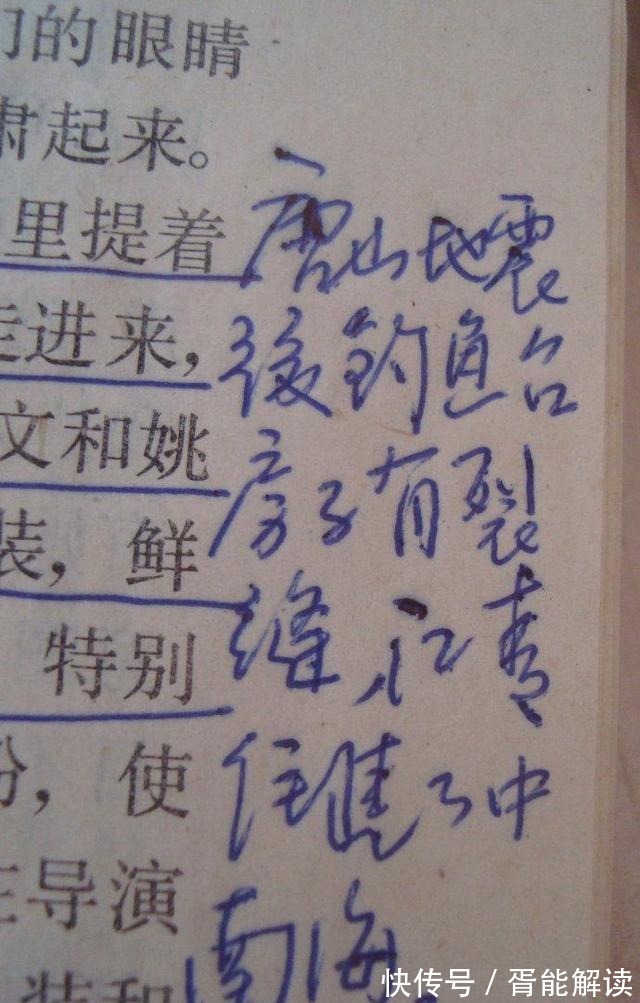 们的眼睛
肃起来。
里提着
走进来，
文和姚
装，鲜
特别
份，使
导演
装和
唐山地震
後钓鱼台
房子有裂
缝，江青
住進了中
南海。
快传号 / 胥能解读